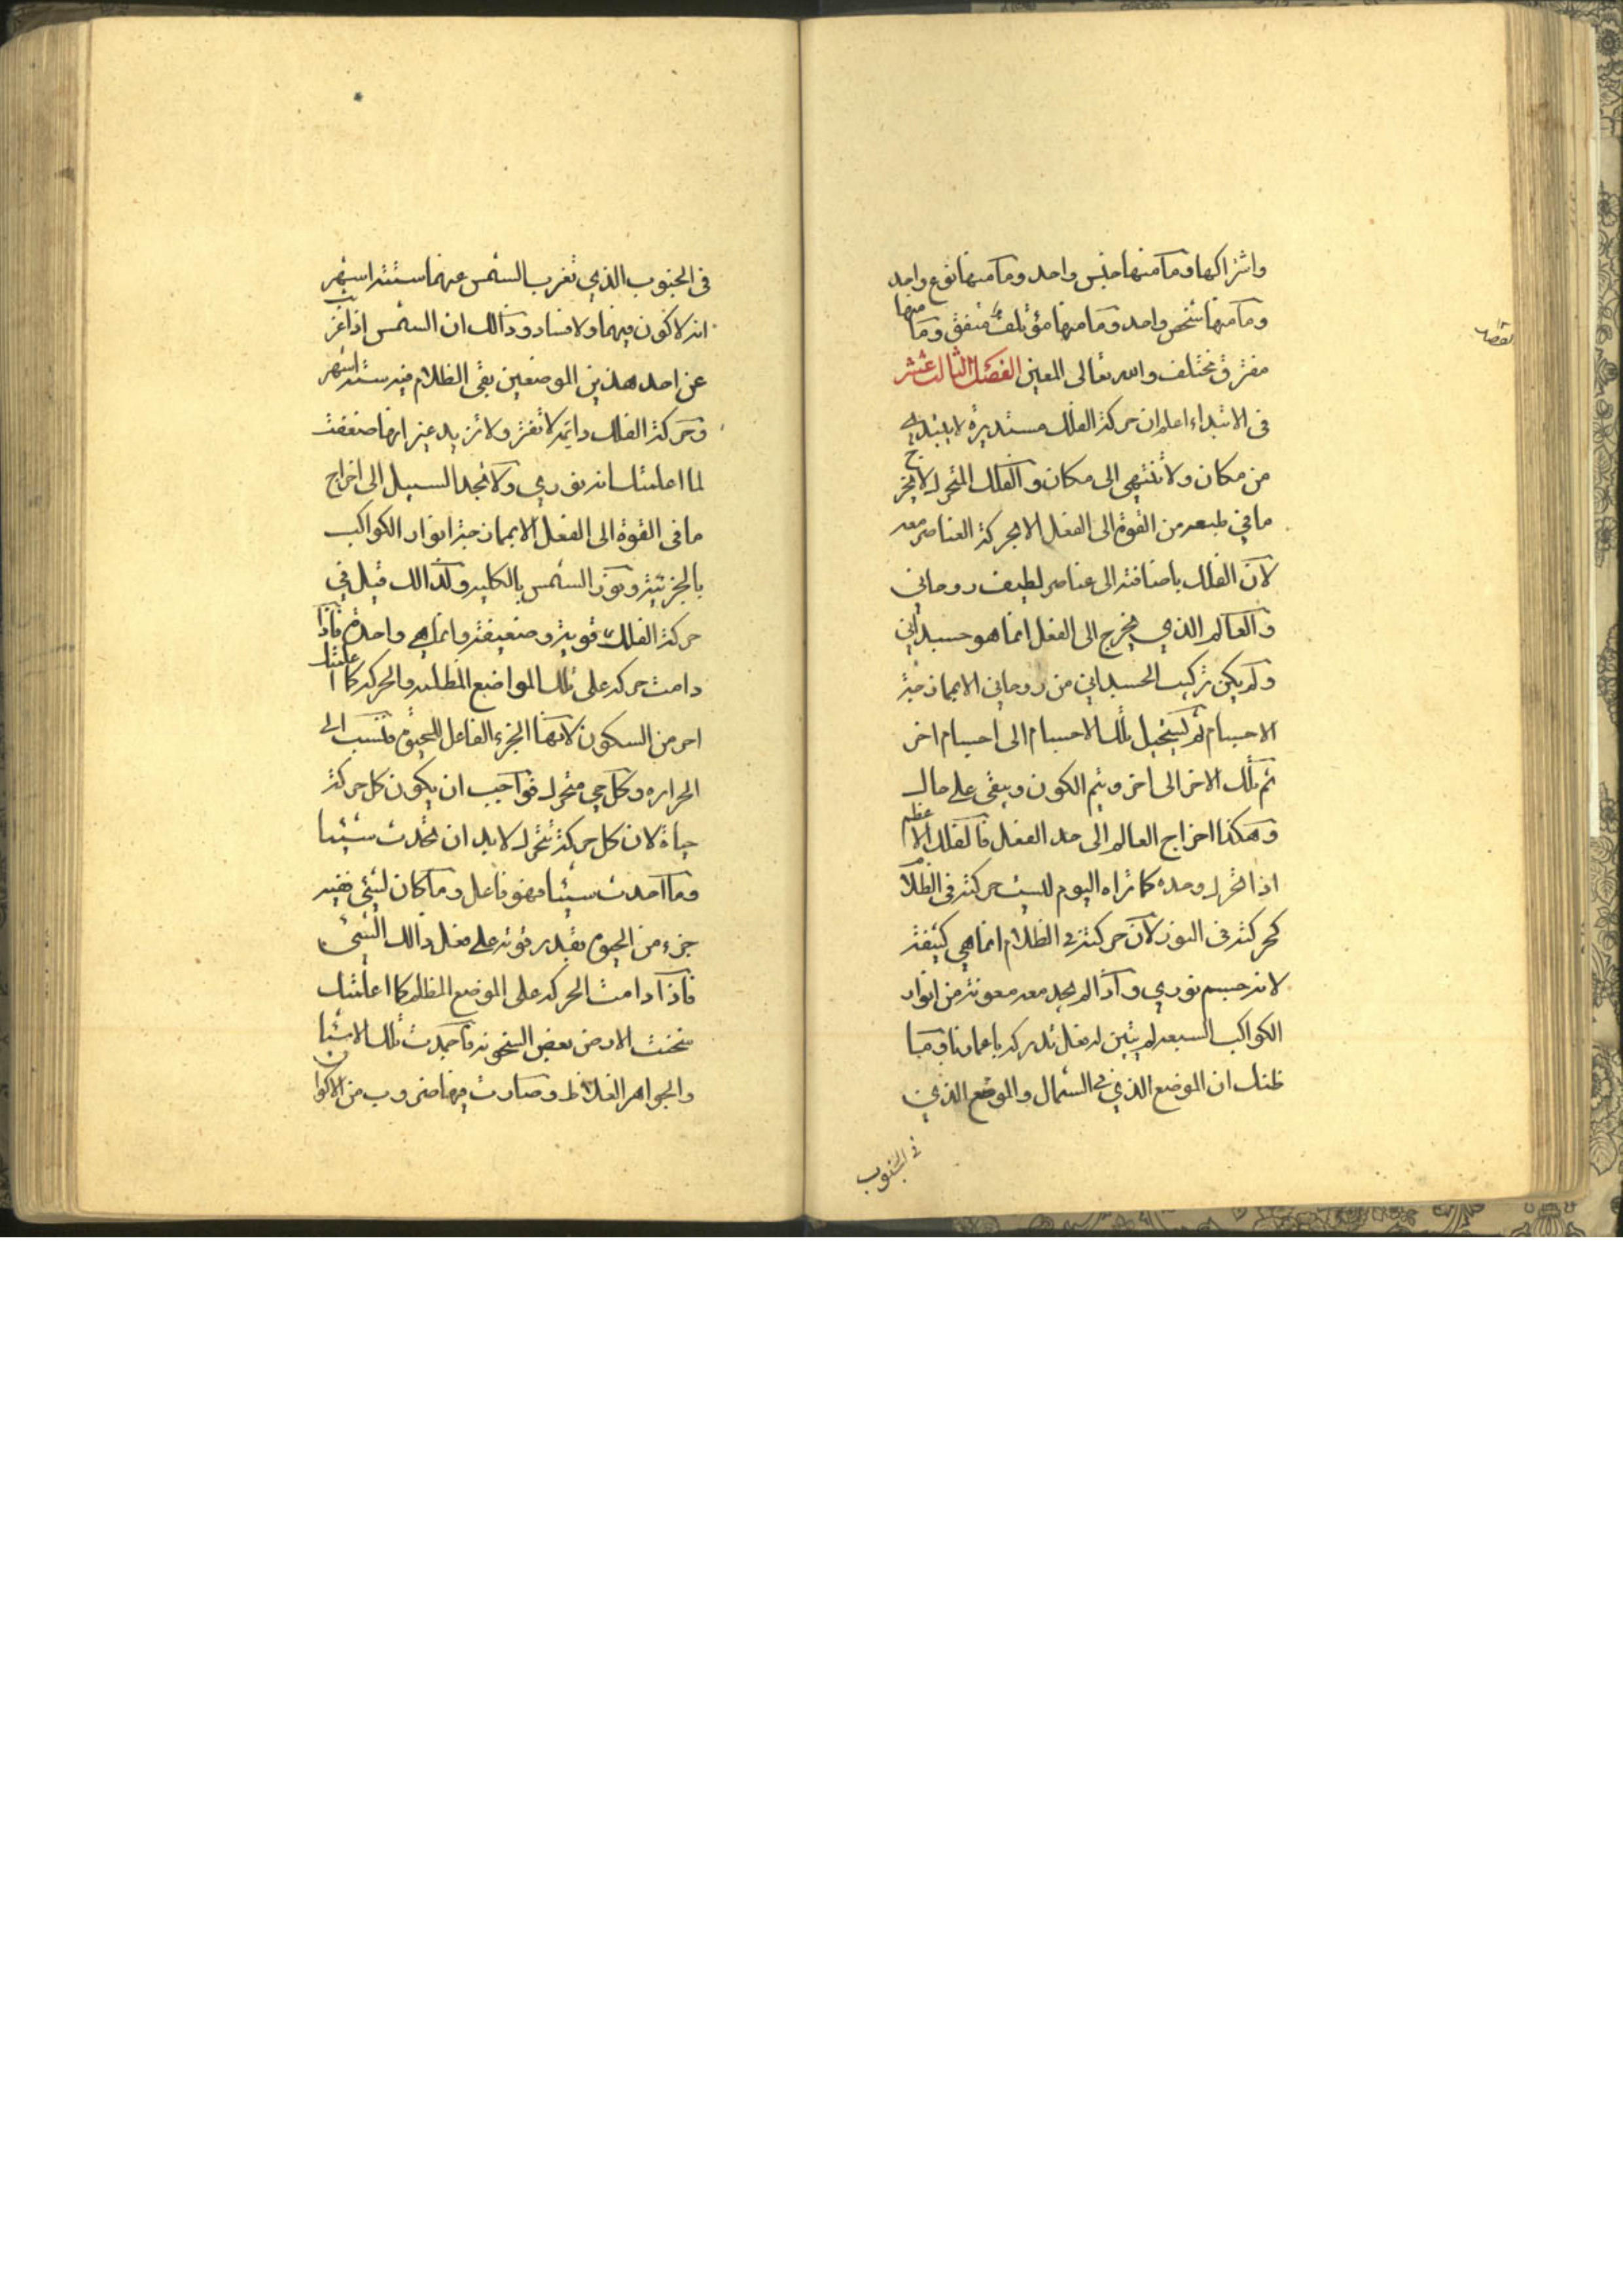 واشتراكها وما منها جنس واحد وما منها نوع واحد
وما منها شخص واحد وما منها مؤتلف متفق وما منها
مفترق مختلف والله تعالى المعين الفصل الثالث عشر
في الابتداء اعلم ان حركة الفلك مستديرة لا يبتدي
من مكان ولا تنتهي الى مكان والفلك المتحرك لا يخرج
ما في طبعه من القوة الى الفعل الا بحركة العناصر معه
لان الفلك باضافته الى عناصر لطيف روحاني
والعالم الذي يخرج الى الفعل انما هو جسداني
ولم يكن تركيب الجسداني من روحاني الا بممازجة
الاجسام ثم يستحيل تلك الاجسام الى اجسام اخر
ثم تلك الاخر الى اخر ويتم الكون ويبقى على حال
وهكذا اخراج العالم الى حد الفعل فالفلك الاعظم
اذا تحرك وحده كما تراه اليوم ليست حركته في الظلام
كحركته في النور لان حركته في الظلام انما هي كثيفة
لانه جسم نوري واذا لم يجد معه معونة من انوار
الكواكب السبعه لم يتبين له فعل تدركه باعمارنا وما
ظنك ان الموضع الذي في الشمال والموضع الذي
في الجنوب
في الجنوب الذي تغرب الشمس عنهما ستة اشهر
انه لا كون فيهما ولا فساد وذالك ان الشمس اذا غربت
عن احد هذين الموضعين بقي الظلام فيه ستة اشهر
وحركة الفلك دائمة لا تفتر ولا تزيد غير انها ضعفت
لما اعلمتك انه نوري ولا تجد السبيل الى اخراج
ما في القوة الى الفعل الا بممازجة انوار الكواكب
بالجزئية ونور الشمس بالكلية ولذالك قيل في
حركة الفلك قوية وضعيفة وانما هي واحدة فاذا
دامت حركته على تلك المواضع المظلمه والحركه كما اعلمتك
احر من السكون لانها الجزء الفاعل للحيوة فنسبت الى
الحراره وكل حي متحرك فواجب ان يكون كل حركة
حياة لان كل حركة تتحرك لا بد ان تحدث شيئا
وما احدث شيئا فهو فاعل وما كان لشئ ففيه
جزء من الحيوة بقدر قوته على فعل ذالك الشئ
فاذا دامت الحركه على الموضع المظلم كما اعلمتك
سخنت الارض بعض السخونه فاجمدت تلك الاشيا
والجواهر الغلاظ وصارت فيها ضروب من الاكوان